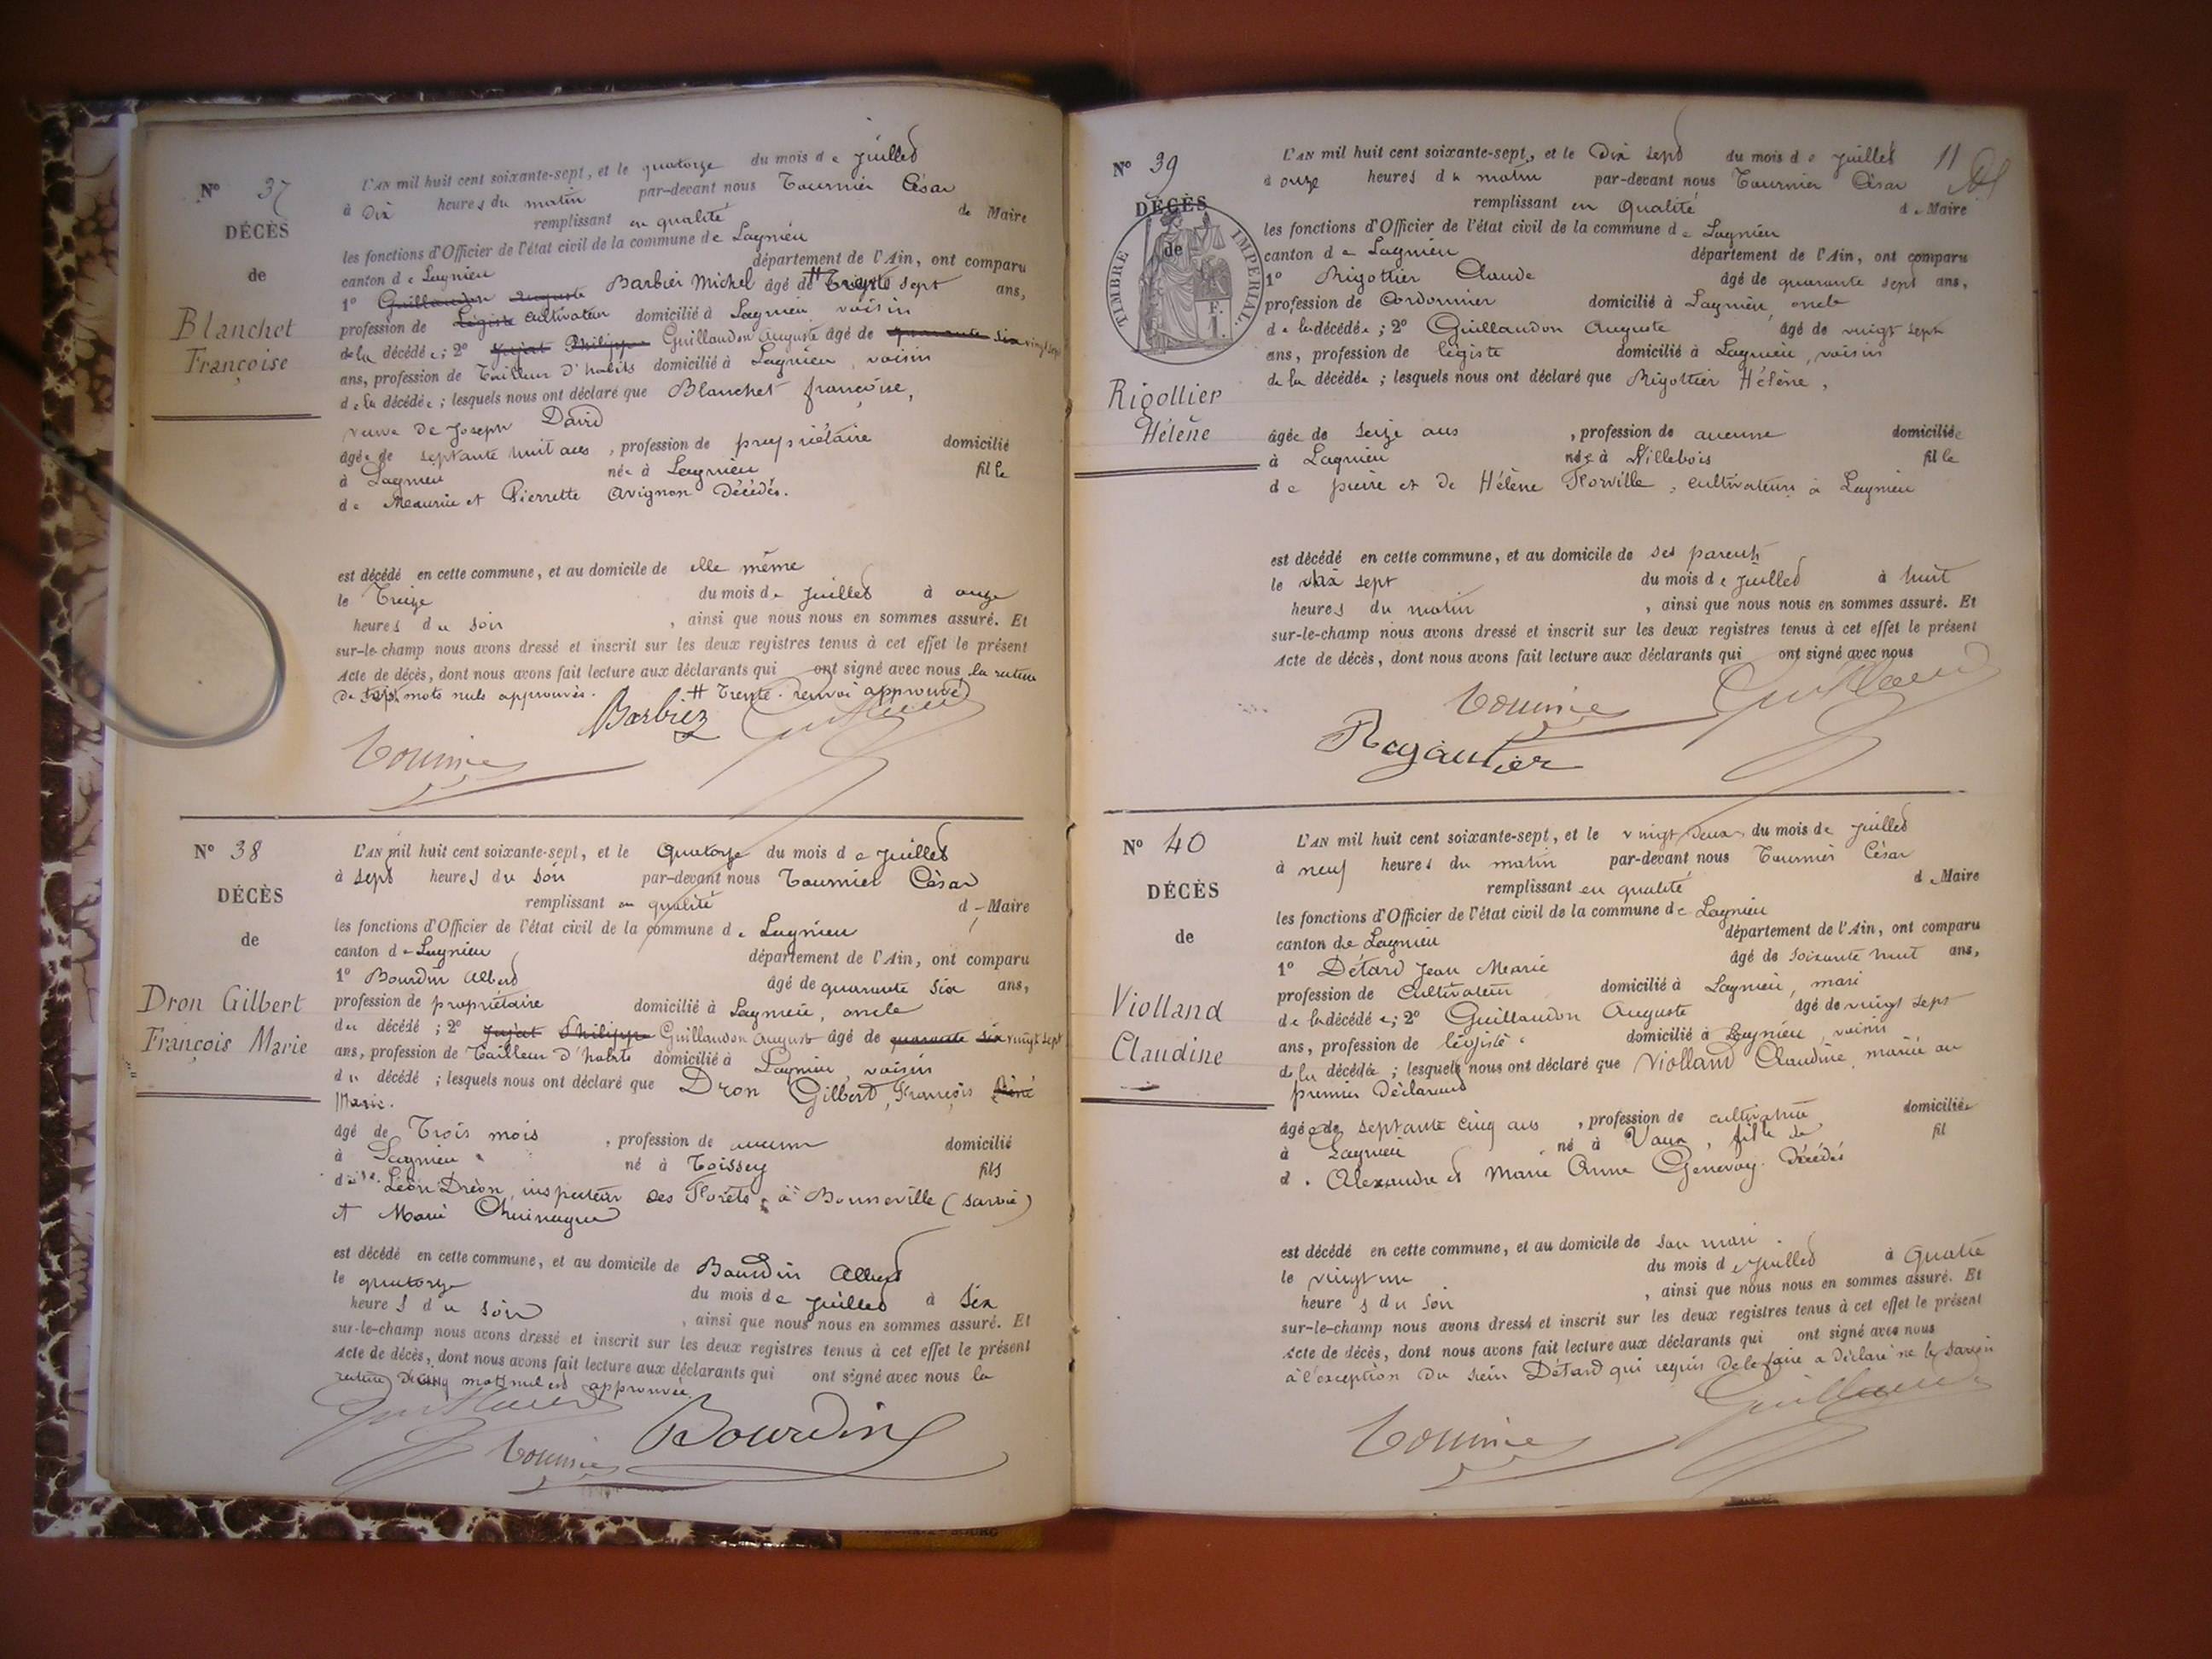 N° 37
DÉCÈS
de
Blanchet
Françoise
L'AN mil huit cent soixante-sept, et le quatorze du mois de juillet
à Dix heures du matin par-devant nous Tournier César
remplissant en qualité de Maire
les fonctions d'Officier de l'état civil de la commune de Lagnieu
canton de Lagnieu département de l'Ain, ont comparu
1° Guillaudon Auguste Barbier Michel âgé de # Trente sept ans,
profession de Légiste cultivateur domicilié à Lagnieu, voisin
de la décédée; 2° Jujat Philippe Guillaudon Auguste âgé de quarante six vingt sept
ans, profession de Tailleur d'habits domicilié à Lagnieu, voisin
de la décédée; lesquels nous ont déclaré que Blanchet françoise,
veuve de Joseph David
âgée de septante huit ans, profession de propriétaire domicilié
à Lagnieu née à Lagnieu fille
de Maurice et Pierrette Avignon Décédés.
est décédé en cette commune, et au domicile de elle même
le Treize du mois de juillet à onze
heures du soir, ainsi que nous nous en sommes assuré. Et
sur-le-champ nous avons dressé et inscrit sur les deux registres tenus à cet effet le présent
Acte de décès, dont nous avons fait lecture aux déclarants qui ont signé avec nous la rature
de sept mots nuls approuvés. # Trente. renvoi approuvé
Barbiez
N° 38
DÉCÈS
de
Dron Gilbert
François Marie
L'AN mil huit cent soixante-sept, et le Quatorze du mois de juillet
à sept heures du soir par-devant nous Tournier César
remplissant en qualité d Maire
les fonctions d'Officier de l'état civil de la commune de Lagnieu
canton de Lagnieu département de l'Ain, ont comparu
1° Bourdin Albert âgé de quarante six ans,
profession de propriétaire domicilié à Lagnieu, oncle
du décédé; 2° Jujat Philippe Guillaudon August âgé de quarante six vingt sept
ans, profession de Tailleur d'habits domicilié à Lagnieu, voisin
du décédé; lesquels nous ont déclaré que Dron Gilbert, François
Marie.
âgé de Trois mois, profession de aucune domicilié
à Lagnieu né à Toissey fils
de Léon Dron, inspecteur des Forêts, à Bonneville (savoie)
et Marie
est décédé en cette commune, et au domicile de Bourdin Albert
le quatorze du mois de juillet à six
heures du soir, ainsi que nous nous en sommes assuré. Et
sur-le-champ nous avons dressé et inscrit sur les deux registres tenus à cet effet le présent
Acte de décès, dont nous avons fait lecture aux déclarants qui ont signé avec nous la
rature de cinq mots nul est approuvée.
Bourdin
11
N° 39
DÉCÈS
de
TIMBRE IMPERIAL
Rigollier
Hélène
L'AN mil huit cent soixante-sept, et le Dix sept du mois de juillet
à onze heures du matin par-devant nous Tournier César
remplissant en Qualité de Maire
les fonctions d'Officier de l'état civil de la commune de Lagnieu
canton de Lagnieu département de l'Ain, ont comparu
1° Rigottier Claude âgé de quarante sept ans,
profession de Cordonnier domicilié à Lagnieu, oncle
de la décédée; 2° Guillaudon Auguste âgé de vingt sept
ans, profession de légiste domicilié à Lagnieu, voisin
de la décédée; lesquels nous ont déclaré que Rigottier Hélène,
âgée de seize ans, profession de aucune domiciliée
à Lagnieu née à Villebois fille
de pierre et de Hélène Florville, cultivateurs à Lagnieu
est décédé en cette commune, et au domicile de ses parents
le dix sept du mois de juillet à huit
heures du matin, ainsi que nous nous en sommes assuré. Et
sur-le-champ nous avons dressé et inscrit sur les deux registres tenus à cet effet le présent
Acte de décès, dont nous avons fait lecture aux déclarants qui ont signé avec nous
N° 40
DÉCÈS
de
Violland
Claudine
L'AN mil huit cent soixante-sept, et le vingt deux du mois de juillet
à neuf heures du matin par-devant nous Tournier César
remplissant en qualité de Maire
les fonctions d'Officier de l'état civil de la commune de Lagnieu
canton de Lagnieu département de l'Ain, ont comparu
1° Détard Jean Marie âgé de soixante huit ans,
profession de Cultivateur domicilié à Lagnieu, mari
de la décédée; 2° Guillaudon Auguste âgé de vingt sept
ans, profession de légiste domicilié à Lagnieu, voisin
de la décédée; lesquels nous ont déclaré que Violland Claudine, mariée au
premier Déclarant
âgée de septante cinq ans, profession de cultivatrice domiciliée
à Lagnieu né à Vaux, fille de fil
d. Alexandre et Marie Anne Genevay. Décédés
est décédé en cette commune, et au domicile de son mari.
le vingt un du mois de juillet à Quatre
heures du soir, ainsi que nous nous en sommes assuré. Et
sur-le-champ nous avons dressé et inscrit sur les deux registres tenus à cet effet le présent
Acte de décès, dont nous avons fait lecture aux déclarants qui ont signé avec nous
à l'exception du sieur Détard qui requis de le faire a déclaré ne le savoir